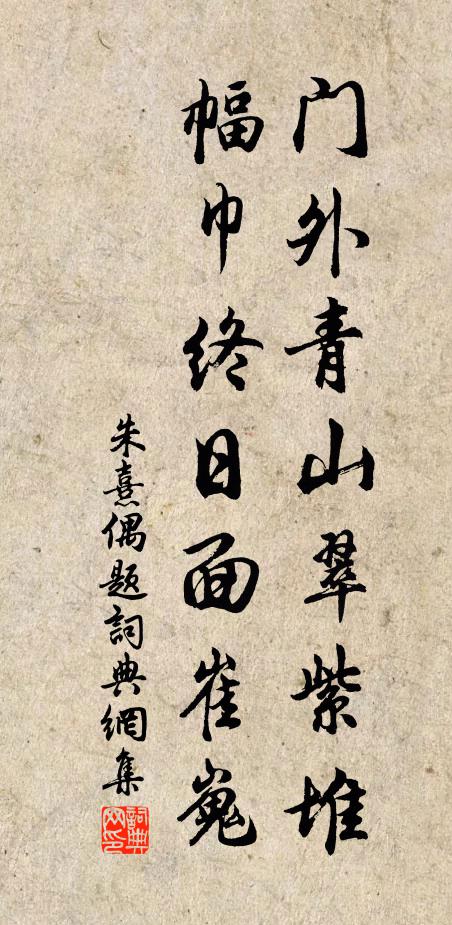 门外青山翠紫堆
幅巾终日面崔嵬
朱熹偶题詞典網集
詞典網印